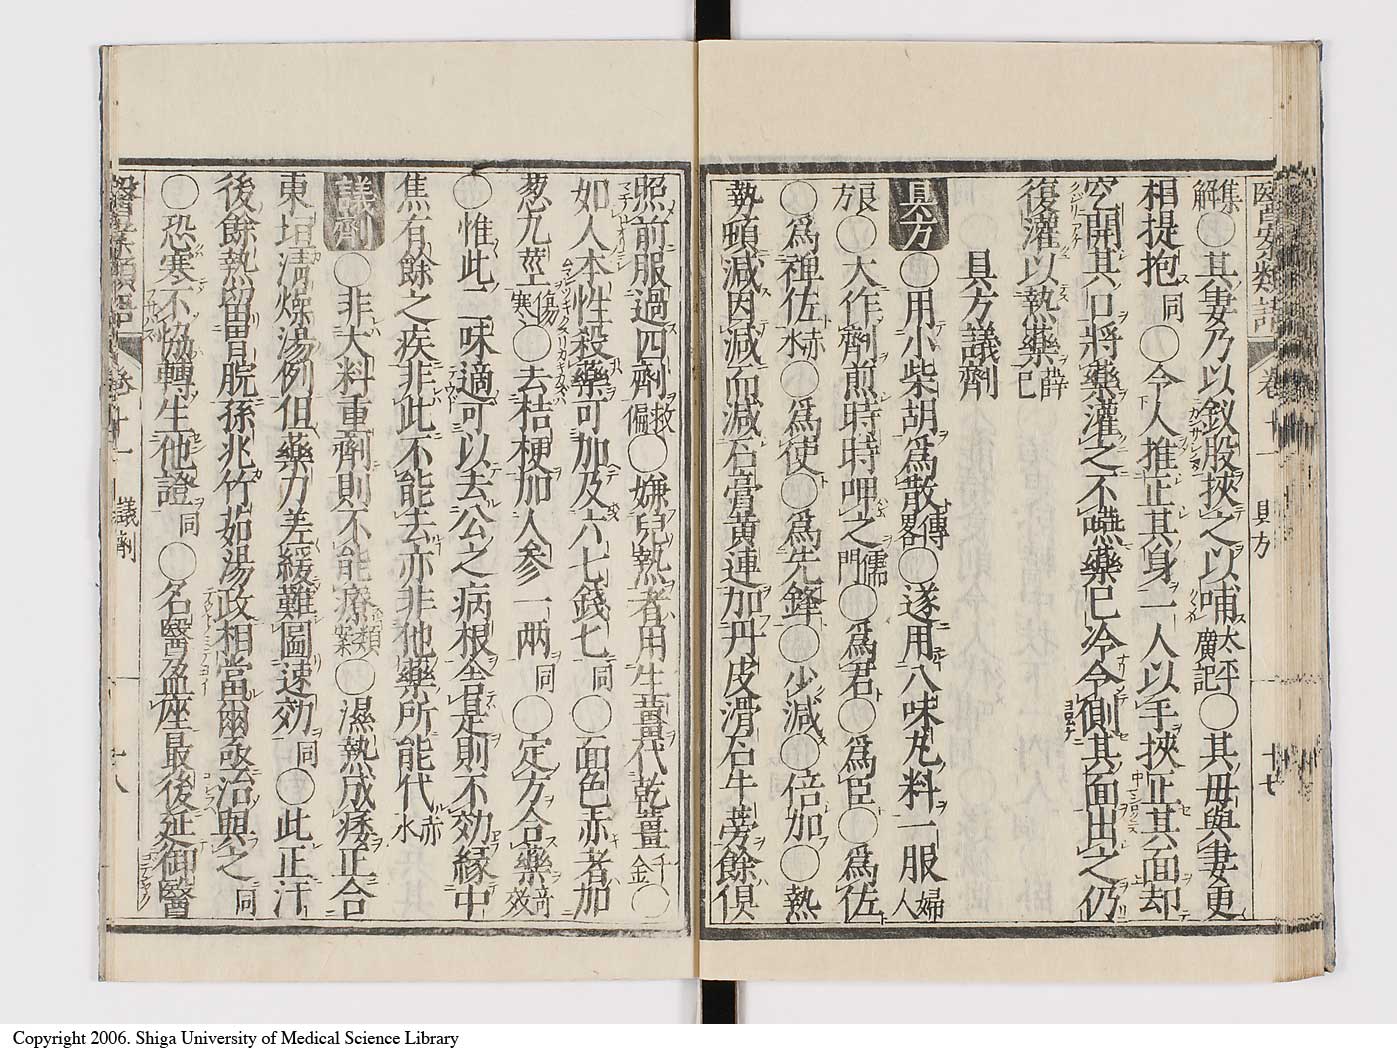 集解○其妻乃以釵股挾之以哺太平廣記○其母與妻更
相提抱同○今人推正其身一人以手挾正其面却
空開其口將藥灌之不嚥藥已冷令側其面出之仍
復灌以熱藥薛己
具方議劑
具方○用小柴胡爲散傳畧○遂用八味丸料一服婦人
良方○大作劑煎時時呷之儒門○爲君○爲臣○爲佐
○爲禆佐赤水○爲使○爲先鋒○少減○倍加○熱
勢頓減因減而減石膏黄連加丹皮滑石牛蒡餘俱
照前服過四劑救偏○嫌兒熱者用生薑代乾薑千金○
如人本性殺藥可加及六七錢匕同○面色赤者加
葱九莖傷寒○去桔梗加人參一兩同○定方合藥竒效
○惟此二味適可以去公之病根舍是則不効縁中
焦有餘之疾非此不能去亦非他藥所能代赤水
議劑○非大料重劑則不能療類案○濕熱成痿正合
東垣清燥湯例但藥力差緩難圖速効同○此正汗
後餘熱留胃脘孫兆竹茹湯政相當爾亟治與之同
○恐寒不協轉生他證同○名醫盈座最後延御醫
卷十一
具方
十七
議劑
十八
Copyright 2006. Shiga University of Medical Science Library